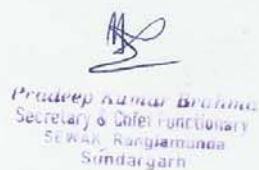 Pradeep Kumar Brahma
Secretary & Chief Functionary
SEWAK, Rangiamunda
Sundargarh